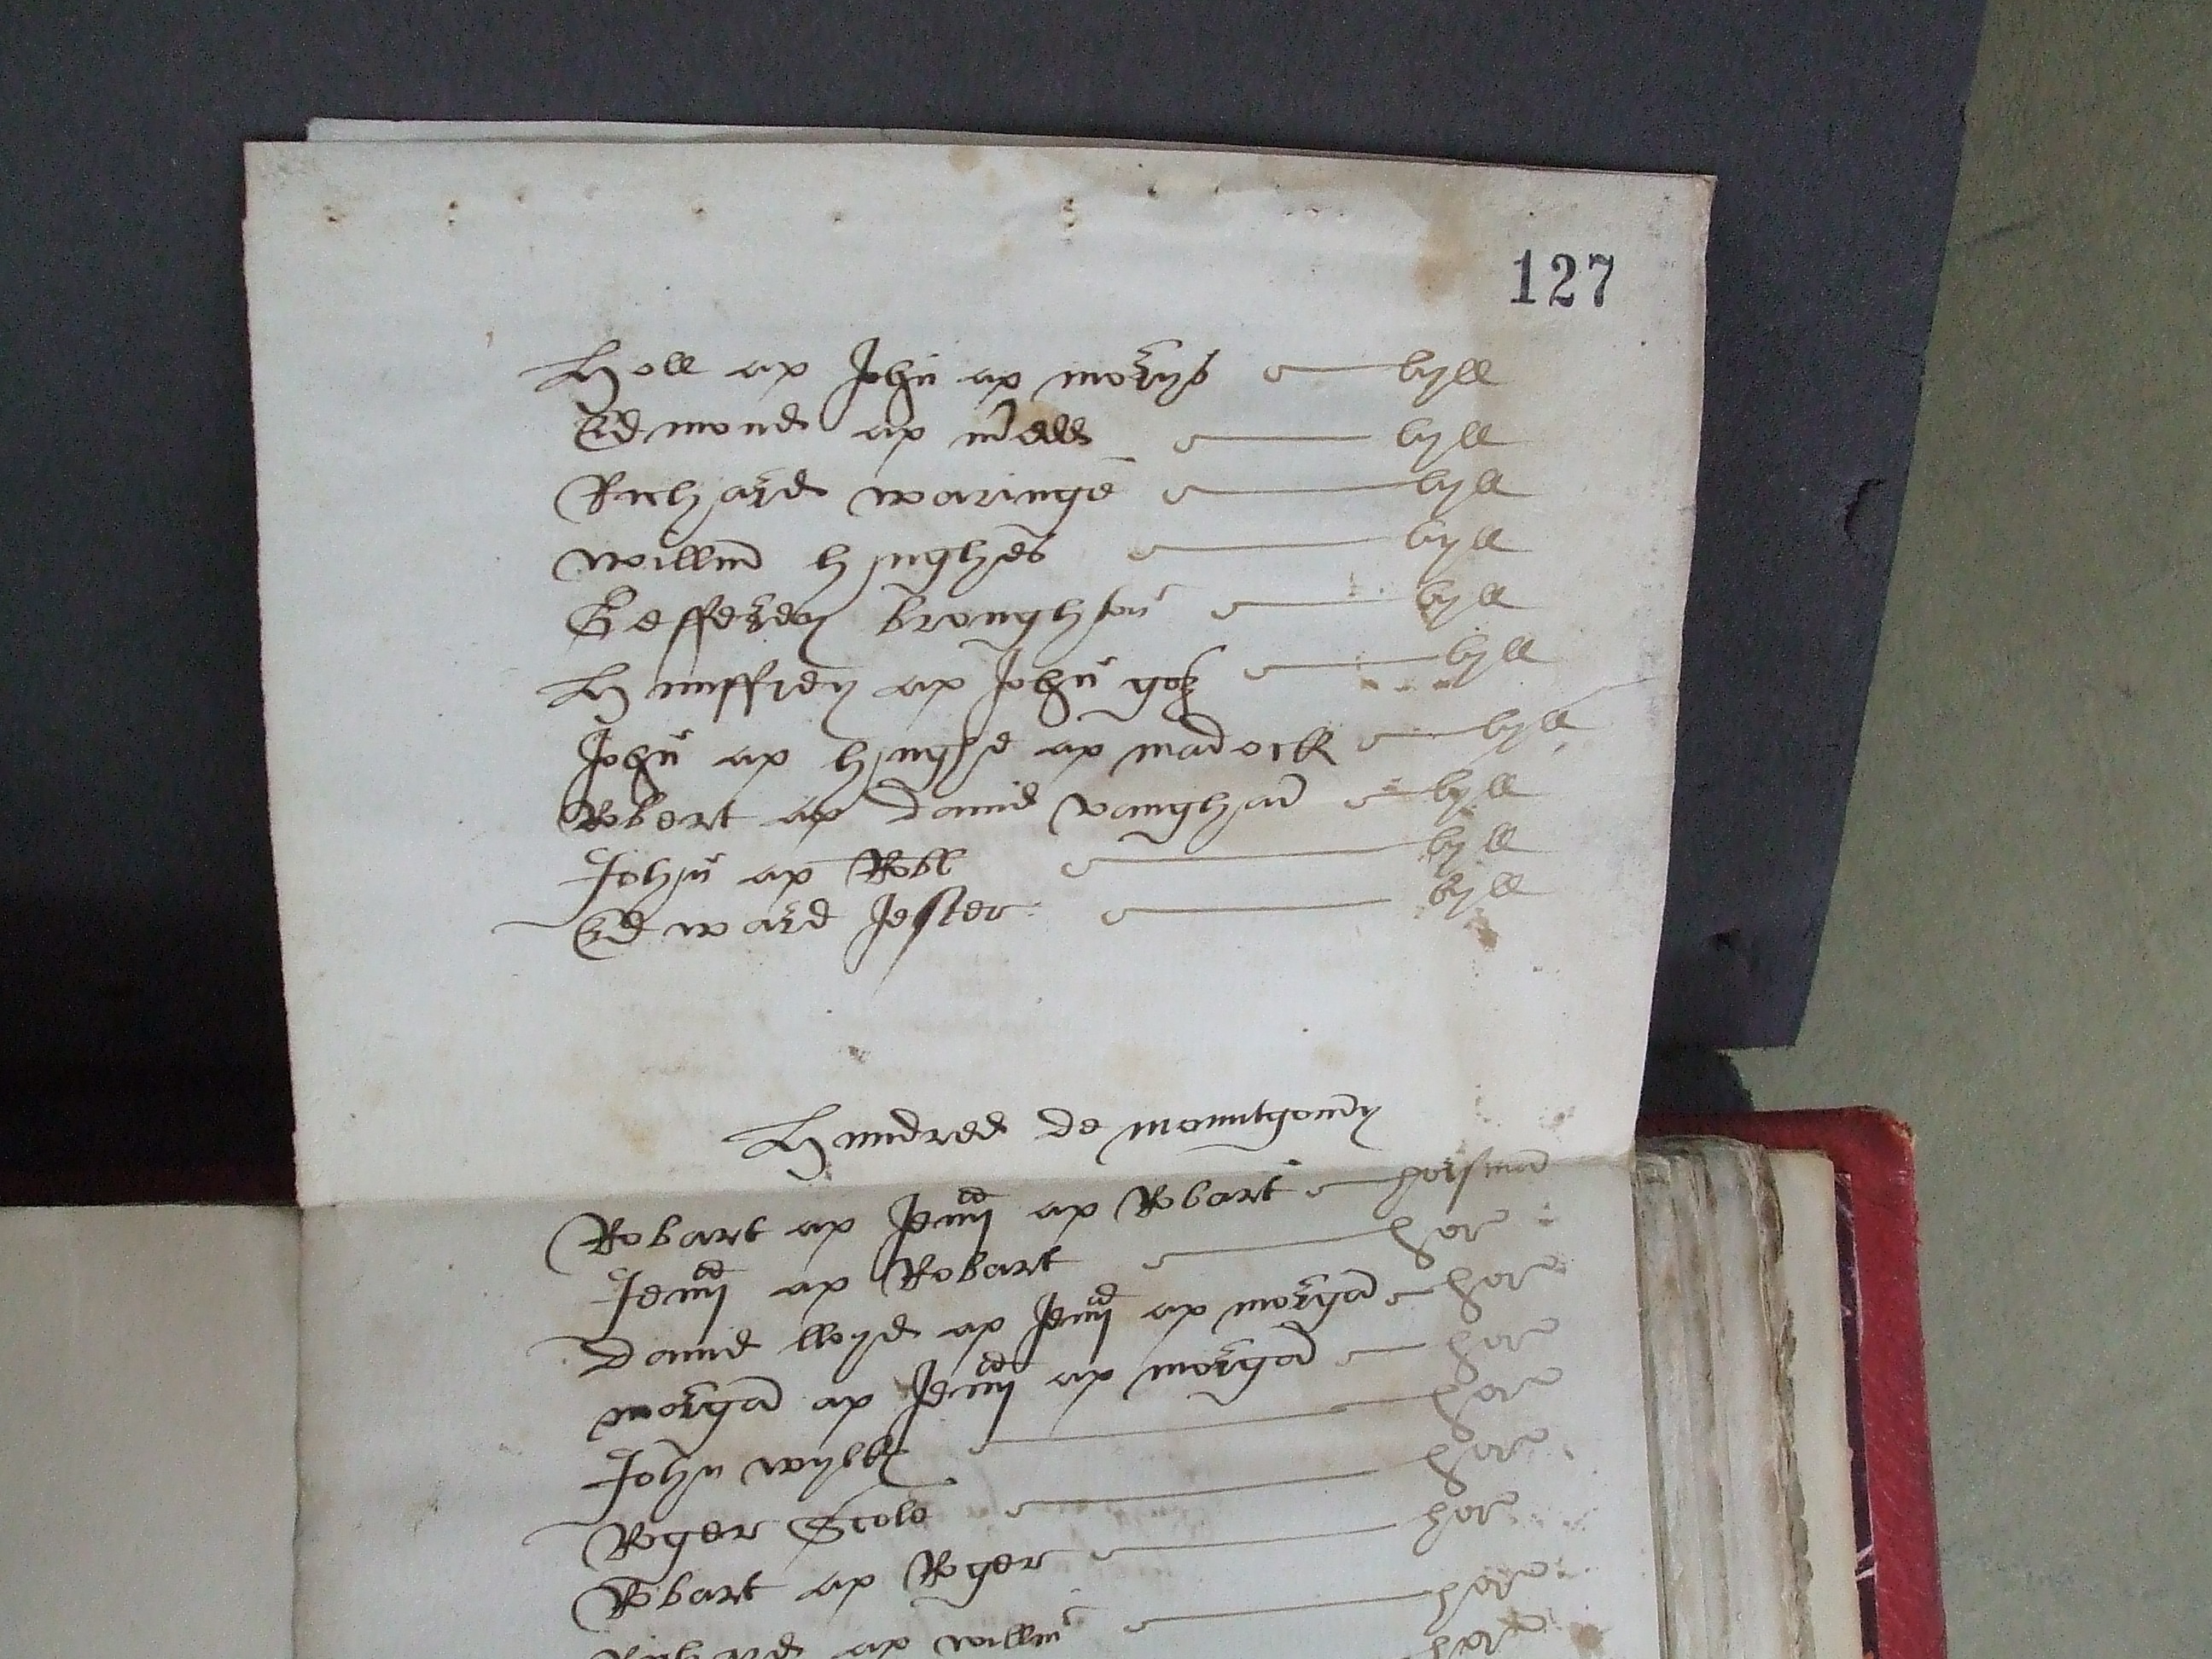 127
Holl ap John ap morys byll
Edmond ap byll
Richard waringe byll
Willm hughes byll
Gefferey broughton byll
Humffrey ap John goz byll
John ap hughe ap madock byll
Robert ap david vaughan byll
John ap Robt byll
Edward Jester byll
Hundred de mountgomy
Robart ap Jenn ap Robart horsman
Jenn ap Robart hor
david lloyd ap Jenn ap morgan hor
morgan ap Jenn ap morgan hor
John hor
Roger hor
Robart ap Roger hor
Richard ap willm hor
hor